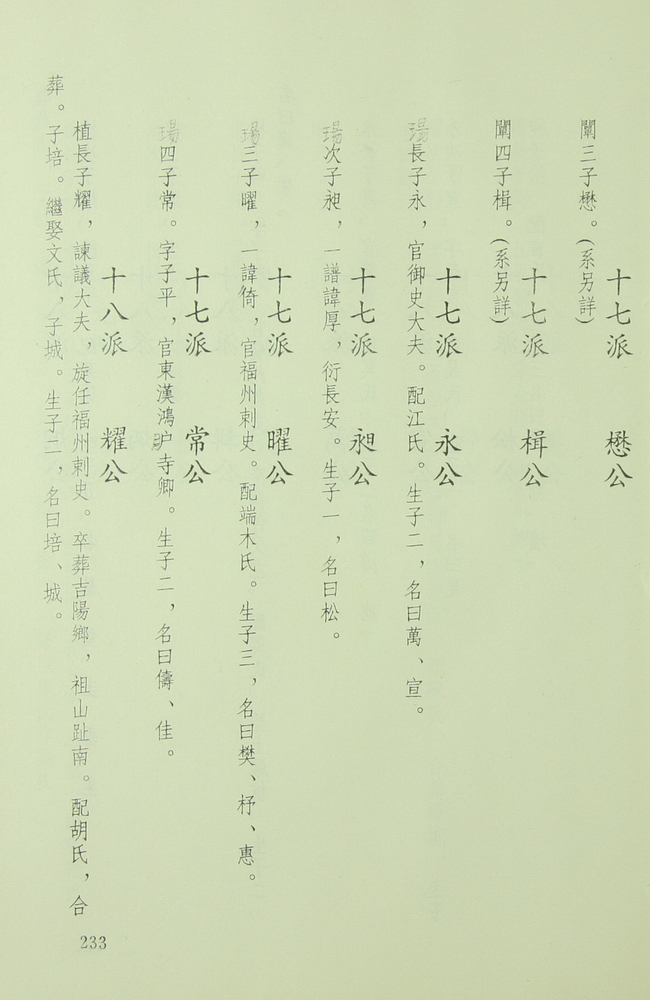 十七派　懋公
闡三子懋。(系另詳)
十七派　楫公
闡四子楫。(系另詳)
十七派　永公
瑒長子永，官御史大夫。配江氏。生子二，名曰萬、宣。
十七派　昶公
瑒次子昶，一譜諱厚，衍長安。生子一，名曰松。
十七派　曜公
瑒三子曜，一諱倚，官福州刺史。配端木氏。生子三，名曰樊、杼、惠。
十七派　常公
瑒四子常。字子平，官東漢鴻臚寺卿。生子二，名曰儔、佳。
十八派　耀公
植長子耀，諫議大夫，旋任福州刺史。卒葬吉陽鄉，祖山趾南。配胡氏，合
葬。子培。繼娶文氏，子城。生子二，名曰培、城。
233